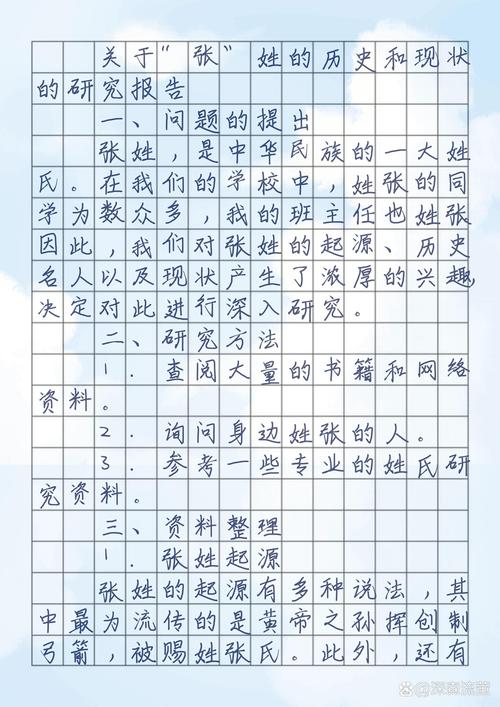 关于“张”姓的历史和现状
的研究报告
一、问题的提出
张姓，是中华民族的一大姓
氏。在我们的学校中，姓张的同
学为数众多，我的班主任也姓张
因此，我们对张姓的起源、历史
名人以及现状产生了浓厚的兴趣，
决定对此进行深入研究。
二、研究方法
1．查阅大量的书籍和网络
资料。
2．询问身边姓张的人。
3．参考一些专业的姓氏研
究资料。
三、资料整理
1．张姓起源
张姓的起源有多种说法，其
中最为流传的是黄帝之孙挥创制
弓箭，被赐姓张氏。此外，还有
@深森流萤